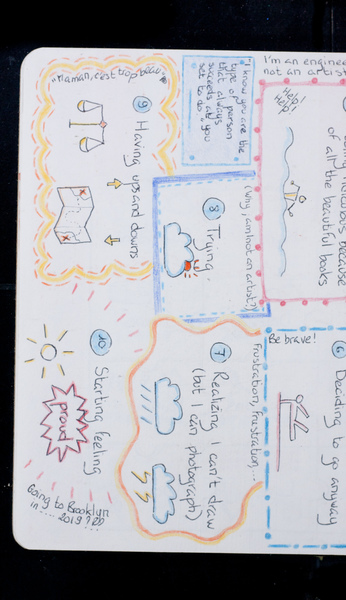 I'm an enginee
not an artis
nervous because
of all the beautiful books
Help!
Help!
6 Deciding to go anyway
Be brave!
"I know you are the
type of person
that always
succeeds at you
set to do."
(Why am I not an artist?)
8 Trying.
Frustration, frustration,...
7 Realizing I can't draw
(but I can photograph)
"Maman, c'est trop beau"
9 Having ups and downs
10 Starting feeling
proud
Going to Brooklyn
in .... 2019 ?